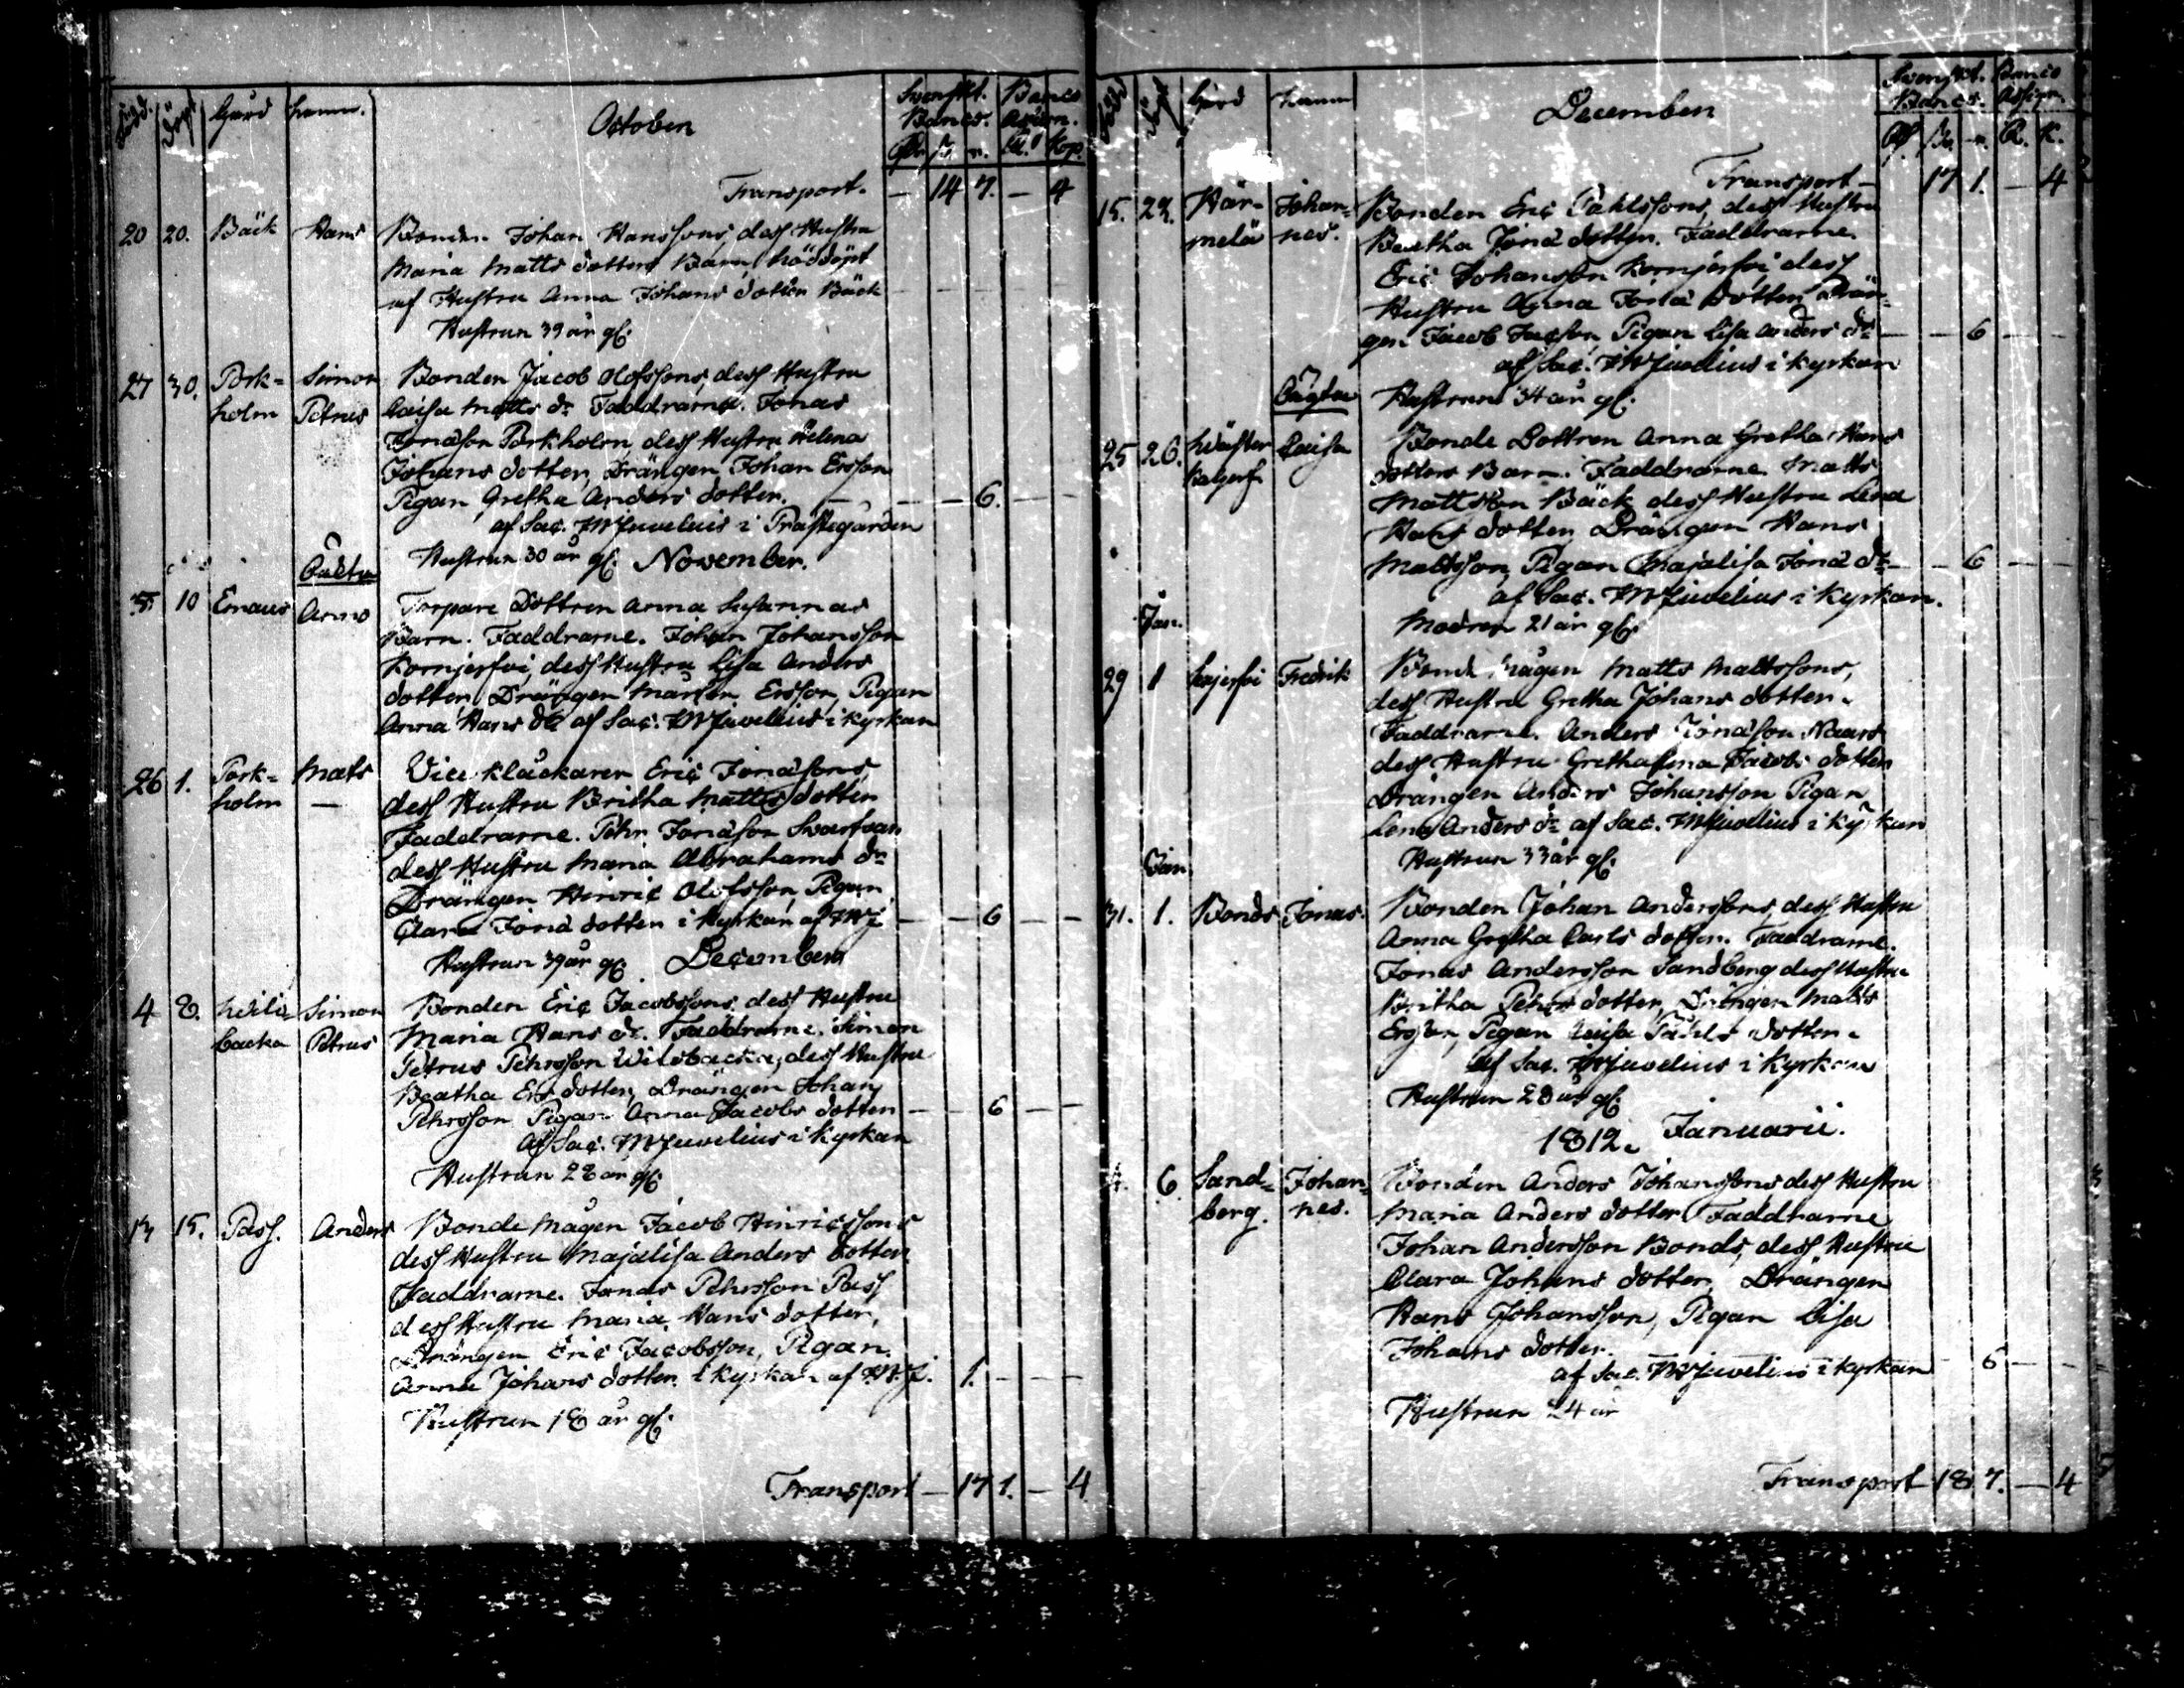 Född. Döpt Gård Namn. October Svenskt. Banco. Banco Assign.
Rd. ß. r. R. Kop.
Transport. — 14 7. — 4
20 20. Bäck Hans Bonden Johan Hanssons, dess Hustru
Maria Matts dotters Barn, nöddöpt
af Hustru Anna Johans dotter Bäck
Hustrun 39 år gl.
27 30. Pork= Simon Bonden Jacob Olofssons, dess Hustru
holm Petrus Caisa Matts dr Faddrarne. Jonas
Jonasson Porkholm dess Hustru Helena
Johans dotter, Drängen Johan Ersson
Pigan Gretha Anders dotter. — — — 6. — —
af Sac. M Juvelius i Prästegården
Hustrun 30 år gl. November.
Oäckta
5. 10 Emaus Anna Torpare Dottren Anna Susannas
Barn. Faddrarne. Johan Johansson
Kornjerfvi, dess Hustru Lisa Anders
dotter, Drängen Mårten Ersson, Pigan
Anna Hans dr af Sac. M Juvelius i kyrkan
26 1. Pork= Mats Vice klåckaren Eric Jonassons,
holm — dess Hustru Britha Matts dotter
Faddrarne. Pehr Jonasson Svartvan
dess Hustru Maria Abrahams dr
Drängen Hinric Olofsson, Pigan
Clara Jona dotter i Kyrkan af MJ — — 6 — —
Hustrun 39 år gl. December
4 8. Wilis= Simon Bonden Eric Jacobssons, dess Hustru
backa Petrus Maria Hans dr. Faddrarne. Simon
Petrus Pehrsson Wilisbacka, dess Hustru
Beatha Ers dotter, Drängen Johan
Pehrsson Pigan Anna Jacobs dotter — — 6 — —
af Sac. M Juvelius i Kyrkan
Hustrun 28 år gl.
13 15. Pass. Anders Bonde Mågen Jacob Hinricssons
dess Hustru Majalisa Anders dotter
Faddrarne. Jonas Pehrsson Pass
dess Hustru Maria Hans dotter,
Drängen Eric Jacobsson, Pigan
Anna Johans dotter i kyrkan af M. J. 1. — — —
Hustrun 18 år gl.
Transport — 17 1. — 4
Född Döpt Gård Namn December Svenskt. Banco. Banco Assign.
Rd. ß. r. R. K.
Transport — 17 1. — 4
15. 22. Här= Johan= Bonden Eric Pahlssons, dess Hustru
melä nes. Beatha Jona dotter. Faddrarne.
Eric Johansson Kornjerfvi dess
Hustru Anna Jona dotter Drän=
gen Jacob Jacsson, Pigan Lisa Anders dr — — 6 — —
af Sac. M Juvelius i kyrkan
Oägta Hustrun 34 år gl.
25 26. Wäster Caisa Bonde Dottren Anna Gretha Hans
dotters Barn. Faddrarne Matts
Mattsson Bäck dess Hustru Lena
Hans dotter Drängen Hans
Mattsson, Pigan Majalisa Jona dr — — 6 — —
af Sac. M Juvelius i Kyrkan.
Jan. Modren 21 år gl.
29 1 Fredrik Bonde Mågen Matts Mattssons,
dess Hustru Gretha Johans dotter.
Faddrarne. Anders Jonasson Naars
dess Hustru Grethalena Jacobs dotter
Drängen Anders Johansson Pigan
Lena Anders dr af Sac. M Juvelius i Kyrkan
Jan. Hustrun 33 år gl.
31. 1. Bonds Jonas. Bonden Johan Anderssons, dess Hustru
Anna Gretha Carls dotter. Faddrarne.
Jonas Andersson Sandberg dess Hustru
Britha Pehrs dotter, Drängen Matts
Ersson, Pigan Caisa Pahls dotter.
af Sac. M Juvelius i Kyrkan
Hustrun 28 år gl.
1812. Januarii.
4. 6. Sand= Johan= Bonden Anders Johanssons dess Hustru
berg. nes. Maria Anders dotter Faddrarne
Johan Andersson Bonds, dess Hustru
Clara Johans dotter, Drängen
Hans Johansson, Pigan Lisa
Johans dotter. 6 —
af Sac. M Juvelius i kyrkan
Hustrun 24 år
Transport 18. 7. — 4